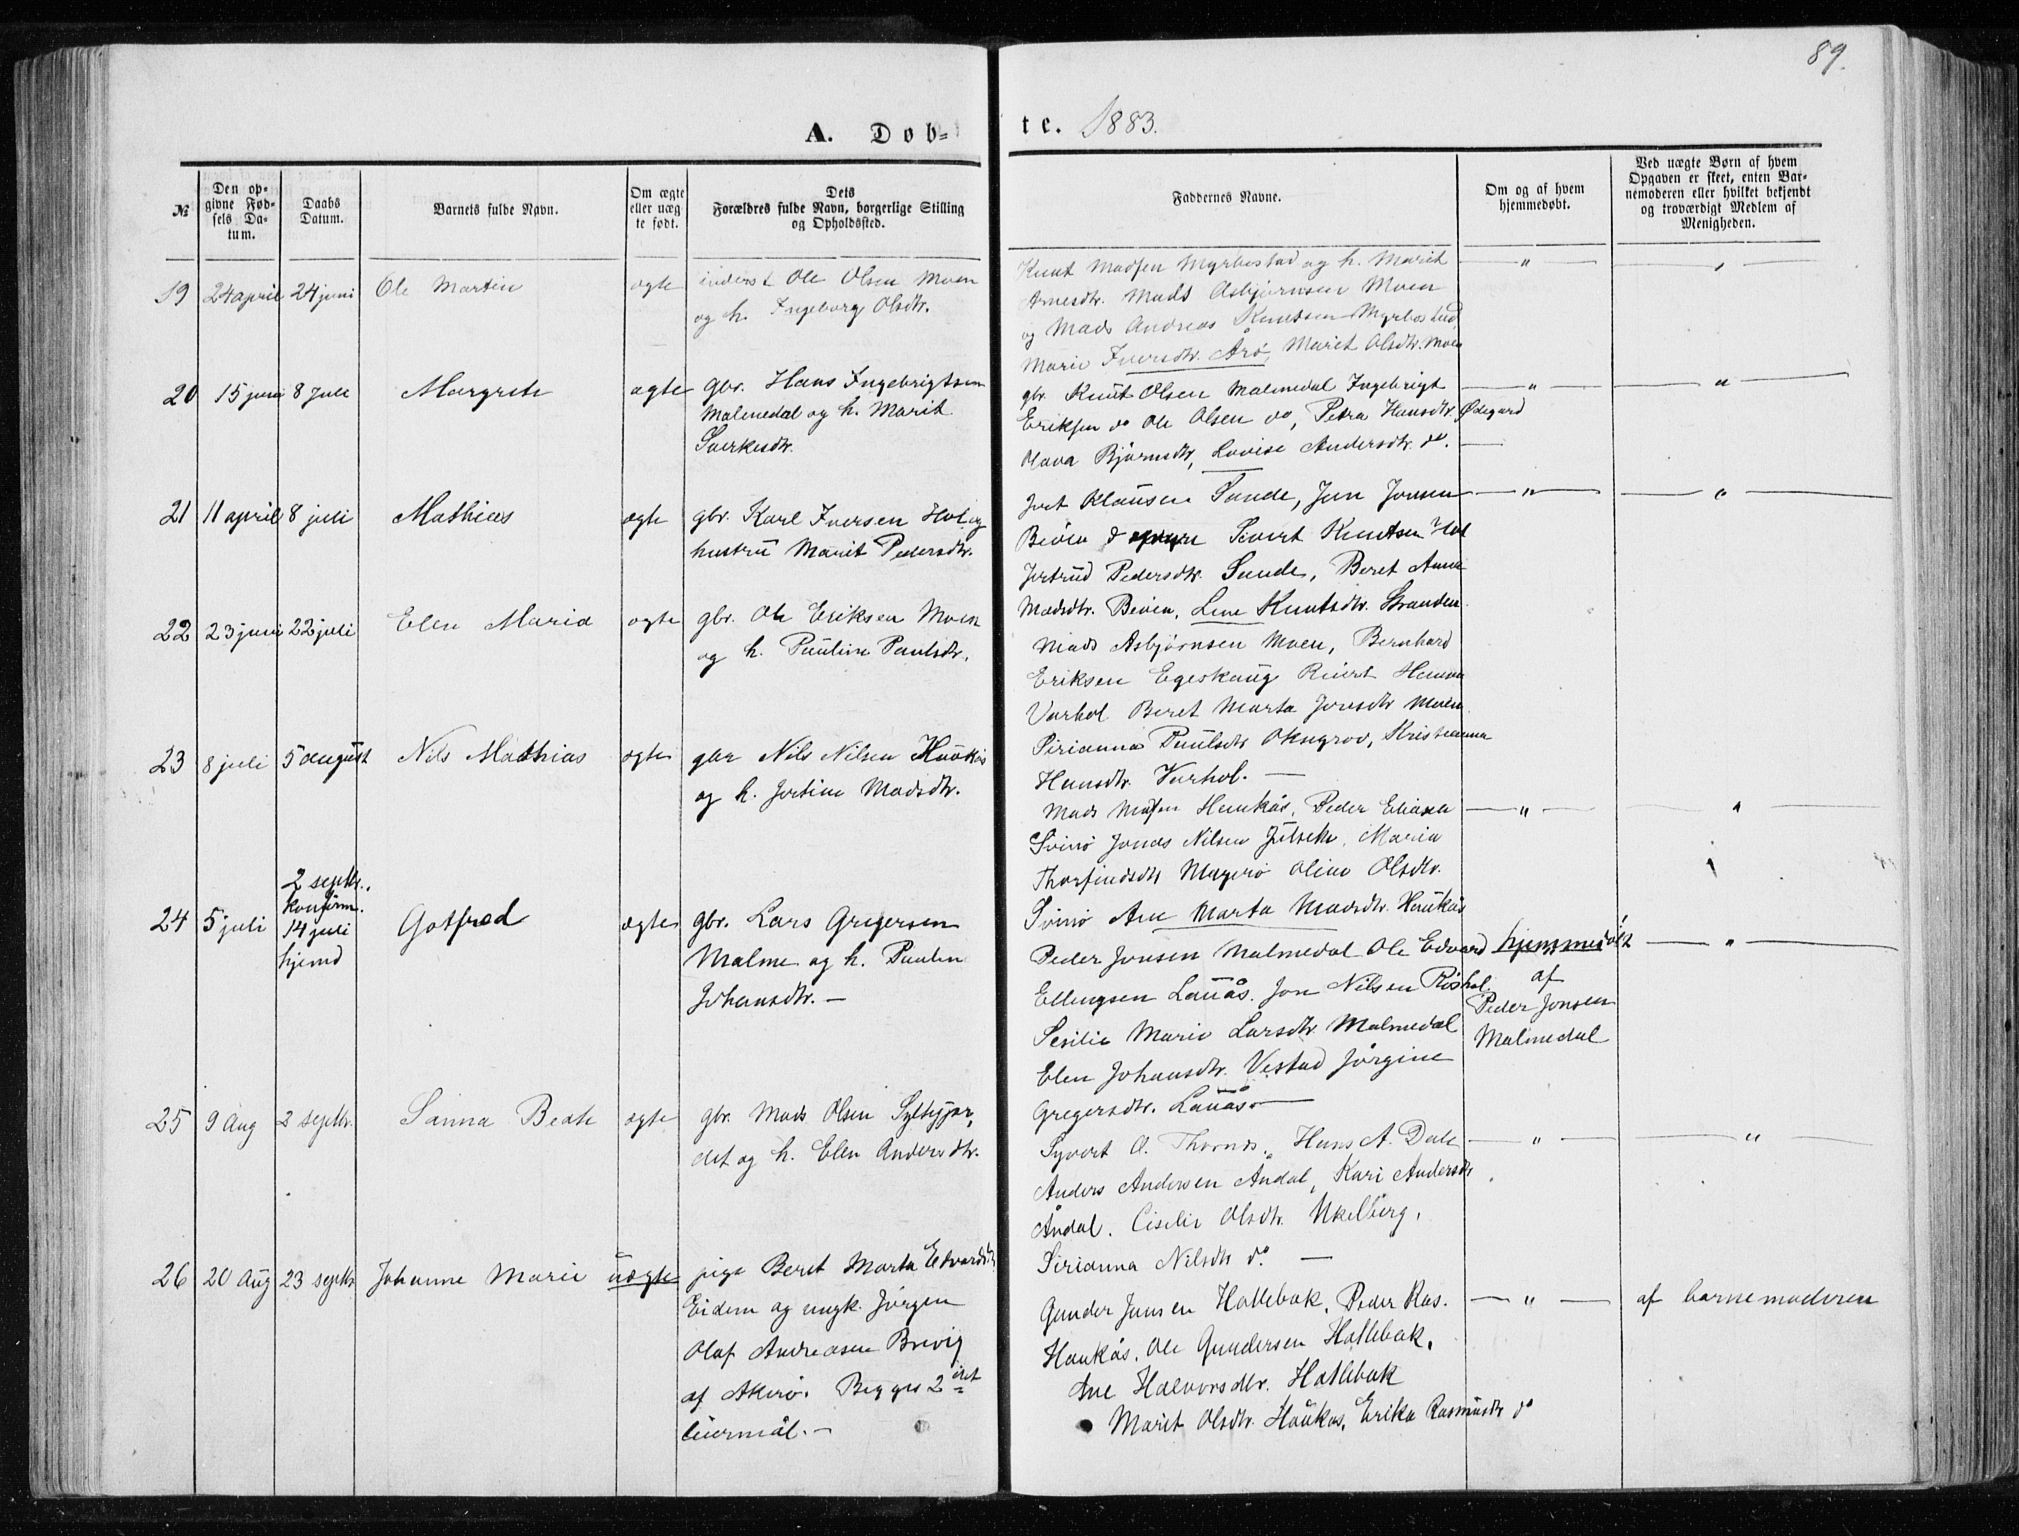 89.
A. Døb=
te. 1883.
№
Den op=
givne Fød=
sels Da=
tum.
Daabs
Datum.
Barnets fulde Navn.
Om ægte
eller uæg
te født.
Dets
Forældres fulde Navn, borgerlige Stilling
og Opholdssted.
Faddernes Navne.
Om og af hvem
hjemmedøbt.
Ved uægte Børn af hvem
Opgaven er skeet, enten Bar-
nemoderen eller hvilket bekjendt
og troværdigt Medlem af
Menigheden.
19 24 april 24 juni Ole Martin ægte inderst Ole Olsen Moen
og h. Ingeborg Olsdtr.
Knut Madsen Myrbostad og h. Marit
Arnesdtr. Mads Asbjørnsen Moen
og Mads Andreas Knutsen Myrbostad,
Marie Iversdtr. Arø, Marit Olsdtr. Moen
20 15 juni 8 Juli Margrete ægte gbr. Hans Ingebrigtsen
Malmedal og h. Marit
Sverkesdtr.
gbr. Knut Olsen Malmedal Ingebrigt
Eriksen do Ole Olsen do, Petra Hansdtr. Ødegard
Olava Bjørnsdtr, Lovise Andersdtr. do.
21 11 april 8 juli Mathias ægte gbr. Karl Iversen Hol og
hustru Marit Pedersdtr.
Jort Klausen Sunde, Jon Jonsen
Beøen Sivert Knutsen Hol
Jertrud Pedersdtr. Sunde, Beret Anna
Madsdtr. Beøen, Line Knutsdtr. Stranden
22 23 juni 22 juli Elen Maria ægte gbr. Ole Eriksen Moen
og h. Pauline Paulsdtr.
Mads Asbjørnsen Moen, Bernhard
Eriksen Egeskaug Knut Hansen
Varhol Beret Marta Jonsdtr Moen
Sirianna Paulsdtr Oksgrov, Kristianna
Hansdtr. Varhol.
23 8 juli 5 august Nils Mathias ægte gbr Nils Nilsen Haukås
og h. Jertine Madsdtr.
Mads Madsen Haukås, Peder Eliasen
Svinø Jonas Nilsen Julset, Maria
Thorfindsdtr Magerø Oline Olsdtr.
Svinø Ane Marta Madsdtr. Haukås
24 5 juli 2 septbr.
konfirm.
14 juli
hjemd
Gotfred ægte gbr. Lars Gregersen
Malme og h. Paulin
Johansdtr.
Peder Jonsen Malmedal Ole Edvard
Ellingsen Lauås. Jon Nilsen Røshol.
Sesilie Marie Larsdtr. Malmedal
Elen Johansdtr. Vestad Jørgine
Gregersdtr. Lauås
hjemmedøbt
af
Peder Jonsen
Malmedal
25 9 Aug 2 septbr. Sanna Beate ægte gbr. Mads Olsen Syltegjær,
det og h. Elen Andersdtr.
Syvert O. Thornes, Hans A. Dale
Anders Andersen Åndal, Kari Andersdtr
Åndal. Ciselie Olsdtr. Mkelberg,
Sirianna Nilsdtr do.
26 20 Aug 23 septbr. Johanne Marie uægte pige Beret Marta Edvardsdtr
Eidem og ungk. Jørgen
Olaf Andreasen Brevig
af Akerø. Begges 2det
leiermål.
Gunder Jansen Hatlebak, Peder Ras.
Haukås, Ole Gundersen Hatlebak,
Ane Halvorsdtr. Hatlebak
Marit Olsdtr. Haukås, Erika Rasmusdtr do
af barnemoderen